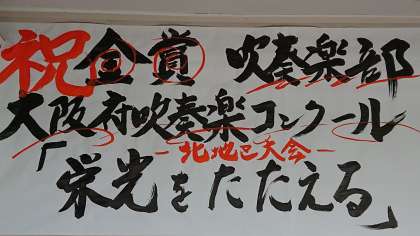 祝 金賞 吹奏楽部
大阪府吹奏楽コンクール
ー北地区大会ー
「栄光をたたえる」